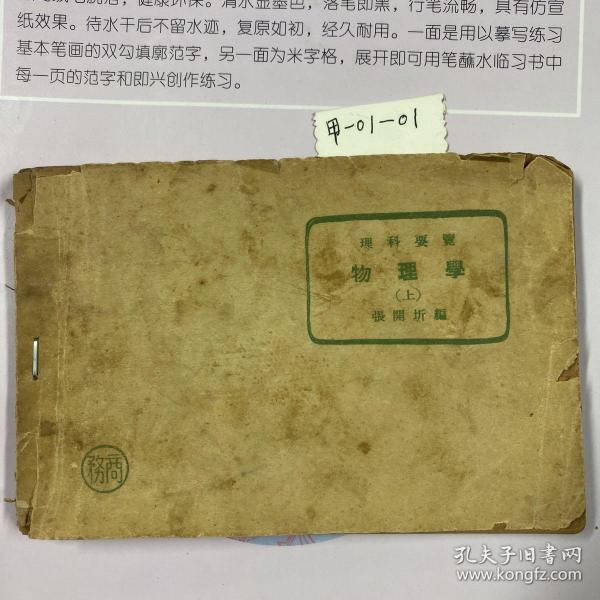 纸效果。待水干后不留水迹，复原如初，经久耐用。一面是用以摹写练习
基本笔画的双勾填廓范字，另一面为米字格，展开即可用笔蘸水临习书中
每一页的范字和即兴创作练习。
甲-01-01
理科要覽
物理學
(上)
張開圻編
商務
孔夫子旧书网
www.kongfz.com